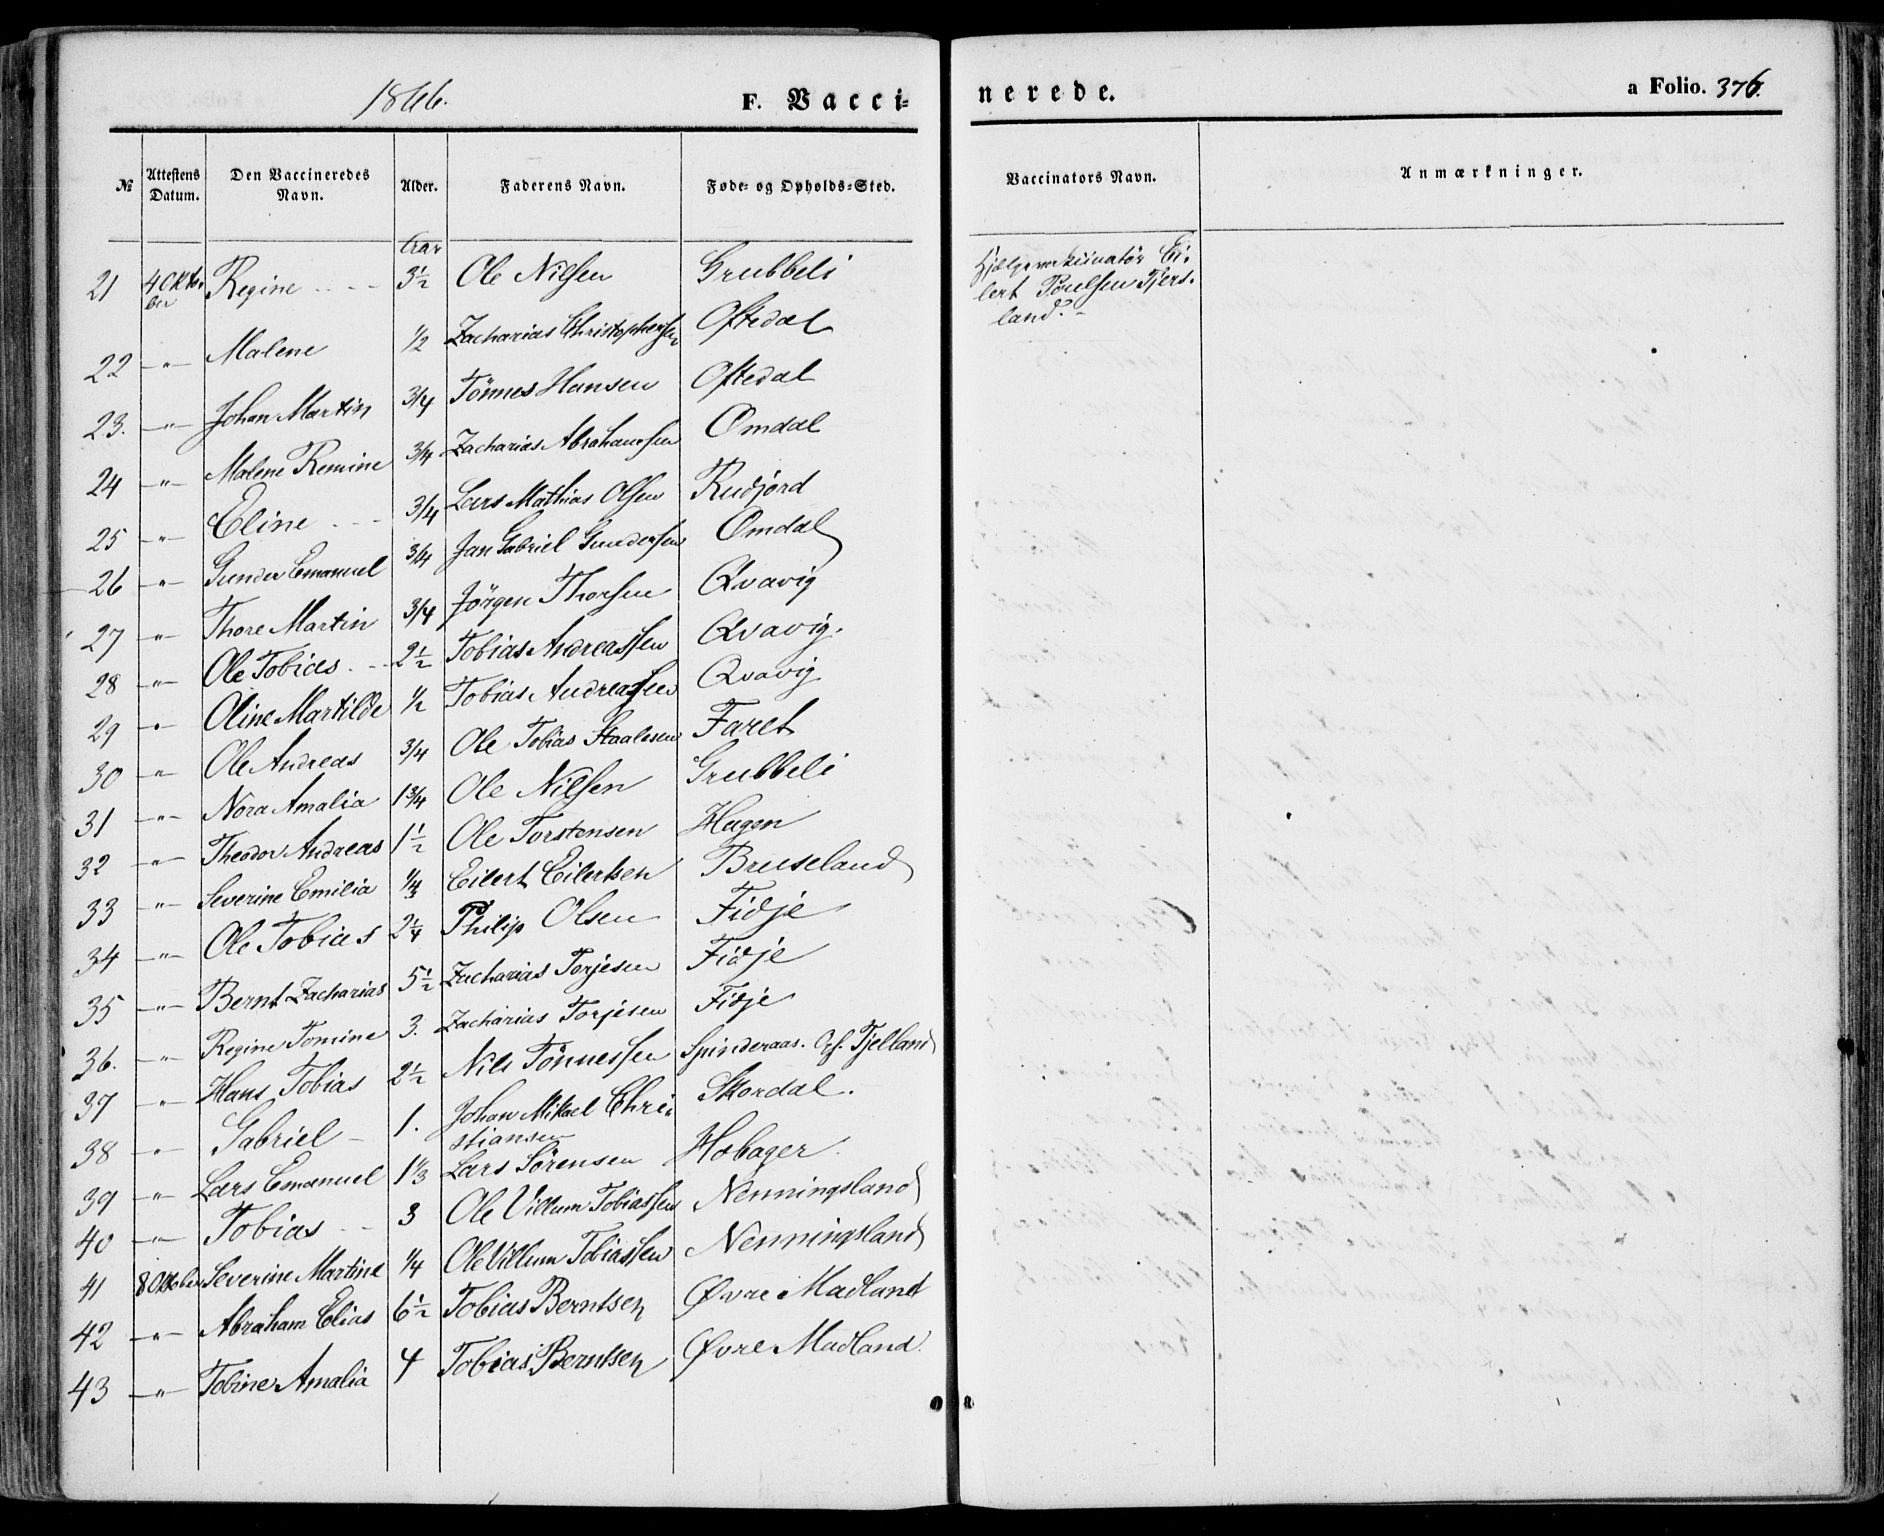 1866.
F. Vacci-
nerede.
a Folio. 376.
№ Attestens Datum. Den Vaccineredes Navn. Alder. Faderens Navn. Føde- og Opholds-Sted. Vaccinators Navn. Anmærkninger.
Aar
21 4 Okto-ber Regine 3½ Ole Nilsen Grubbeli Hjælpevakcinatør Ei-
lert Poulsen Tjers-
land.
22 -"- Malene 1/2 Zacharias Christophersen Oftedal
23. -"- Johan Martin 3/4 Tønnes Hansen Oftedal
24 -"- Malene Remine 3/4 Zacharias Abrahamsen Omdal
25 -"- Eline 3/4 Lars Mathias Olsen Rudjord
26 -"- Gunder Emanuel 3/4 Jan Gabriel Gundersen Omdal
27 -"- Thore Martin 3/4 Jörgen Thorsen Qvavig
28 -"- Ole Tobias 2½ Tobias Andreassen Qvavig.
29 -"- Oline Martilde 1/2 Tobias Andreassen Qvavig
30 -"- Ole Andreas 3/4 Ole Tobias Staalesen Faret
31 -"- Nora Amalia 1¾ Ole Nilsen Grubbeli
32 -"- Theodor Andreas 1½ Ole Torstensen Hagen
33 -"- Severine Emilia Eilert Eilertsen Bruseland
34 -"- Ole Tobias 2¼ Philip Olsen Fidje
35 -"- Bernt Zacharias 5½ Zacharias Torjesen Fidje
36. -"- Regine Tomine 3. Zacharias Torjesen Fidje
37 -"- Hans Tobias 2½ Nils Tönnessen Spinderaas. Tjelland
38 -"- Gabriel 1. Johan Mikael Chri-
stiansen Skordal.
39 -"- Lars Emanuel 1⅓ Lars Sörensen Hobager
40 -"- Tobias 3 Ole Villum Tobiassen Nenningsland
41 8 Oktober Severine Martine 1/4 Ole Villum Tobiassen Nenningsland
42 -"- Abraham Elias 6½ Tobias Berntsen Øvre Madland
43 -"- Tobine Amalia 4 Tobias Berntsen Øvre Madland.